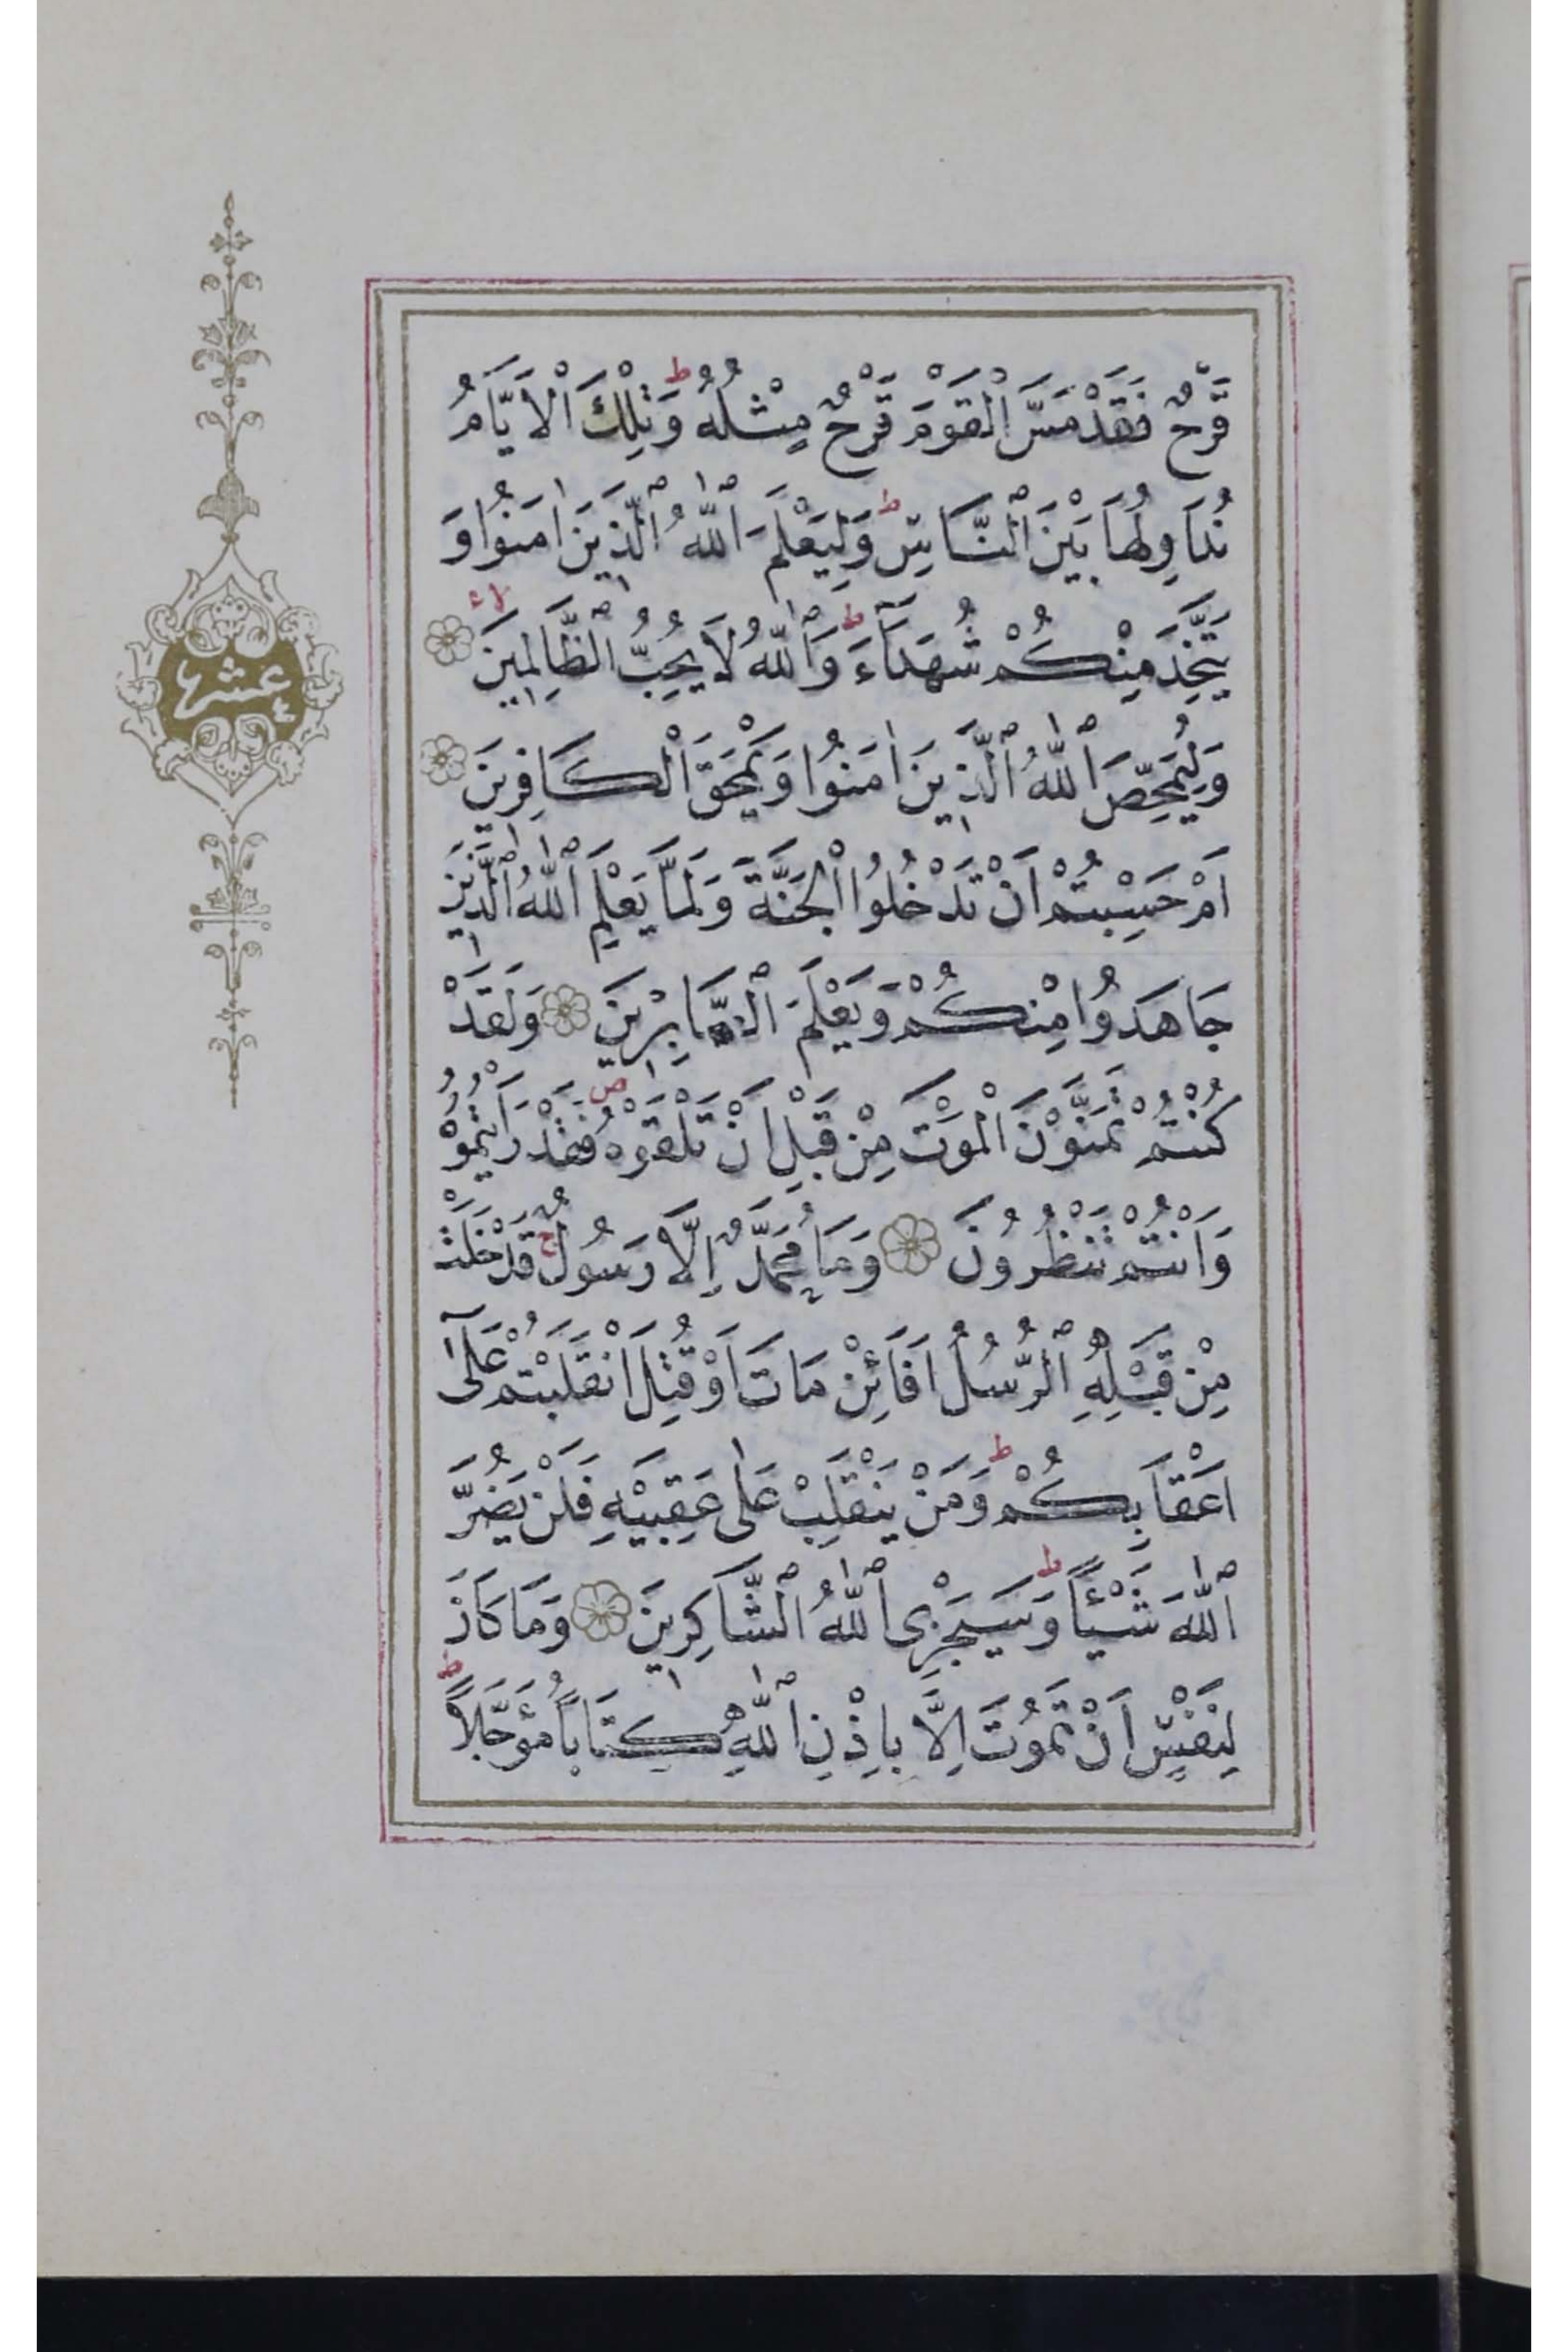 قَرْحٌ فَقَدْ مَسَّ الْقَوْمَ قَرْحٌ مِثْلُهُ ط وَتِلْكَ الْاَيَّامُ
نُدَاوِلُهَا بَيْنَ النَّاسِ ط وَلِيَعْلَمَ اللّٰهُ الَّذِينَ اٰمَنُوا وَ
يَتَّخِذَ مِنْكُمْ شُهَدَٓاءَ ط وَاللّٰهُ لَا يُحِبُّ الظَّالِمِينَ لا
عشر
وَلِيُمَحِّصَ اللّٰهُ الَّذِينَ اٰمَنُوا وَيَمْحَقَ الْكَافِرِينَ
اَمْ حَسِبْتُمْ اَنْ تَدْخُلُوا الْجَنَّةَ وَلَمَّا يَعْلَمِ اللّٰهُ الَّذِينَ
جَاهَدُوا مِنْكُمْ وَيَعْلَمَ الصَّابِرِينَ وَلَقَدْ
كُنْتُمْ تَمَنَّوْنَ الْمَوْتَ مِنْ قَبْلِ اَنْ تَلْقَوْهُ ص فَقَدْ رَاَيْتُمُوهُ
وَاَنْتُمْ تَنْظُرُونَ وَمَا مُحَمَّدٌ اِلَّا رَسُولٌ ج قَدْ خَلَتْ
مِنْ قَبْلِهِ الرُّسُلُ اَفَائِنْ مَاتَ اَوْ قُتِلَ انْقَلَبْتُمْ عَلٰٓى
اَعْقَابِكُمْ ط وَمَنْ يَنْقَلِبْ عَلٰى عَقِبَيْهِ فَلَنْ يَضُرَّ
اللّٰهَ شَيْـًٔا ط وَسَيَجْزِى اللّٰهُ الشَّاكِرِينَ وَمَا كَانَ
لِنَفْسٍ اَنْ تَمُوتَ اِلَّا بِاِذْنِ اللّٰهِ كِتَابًا مُؤَجَّلًا ط